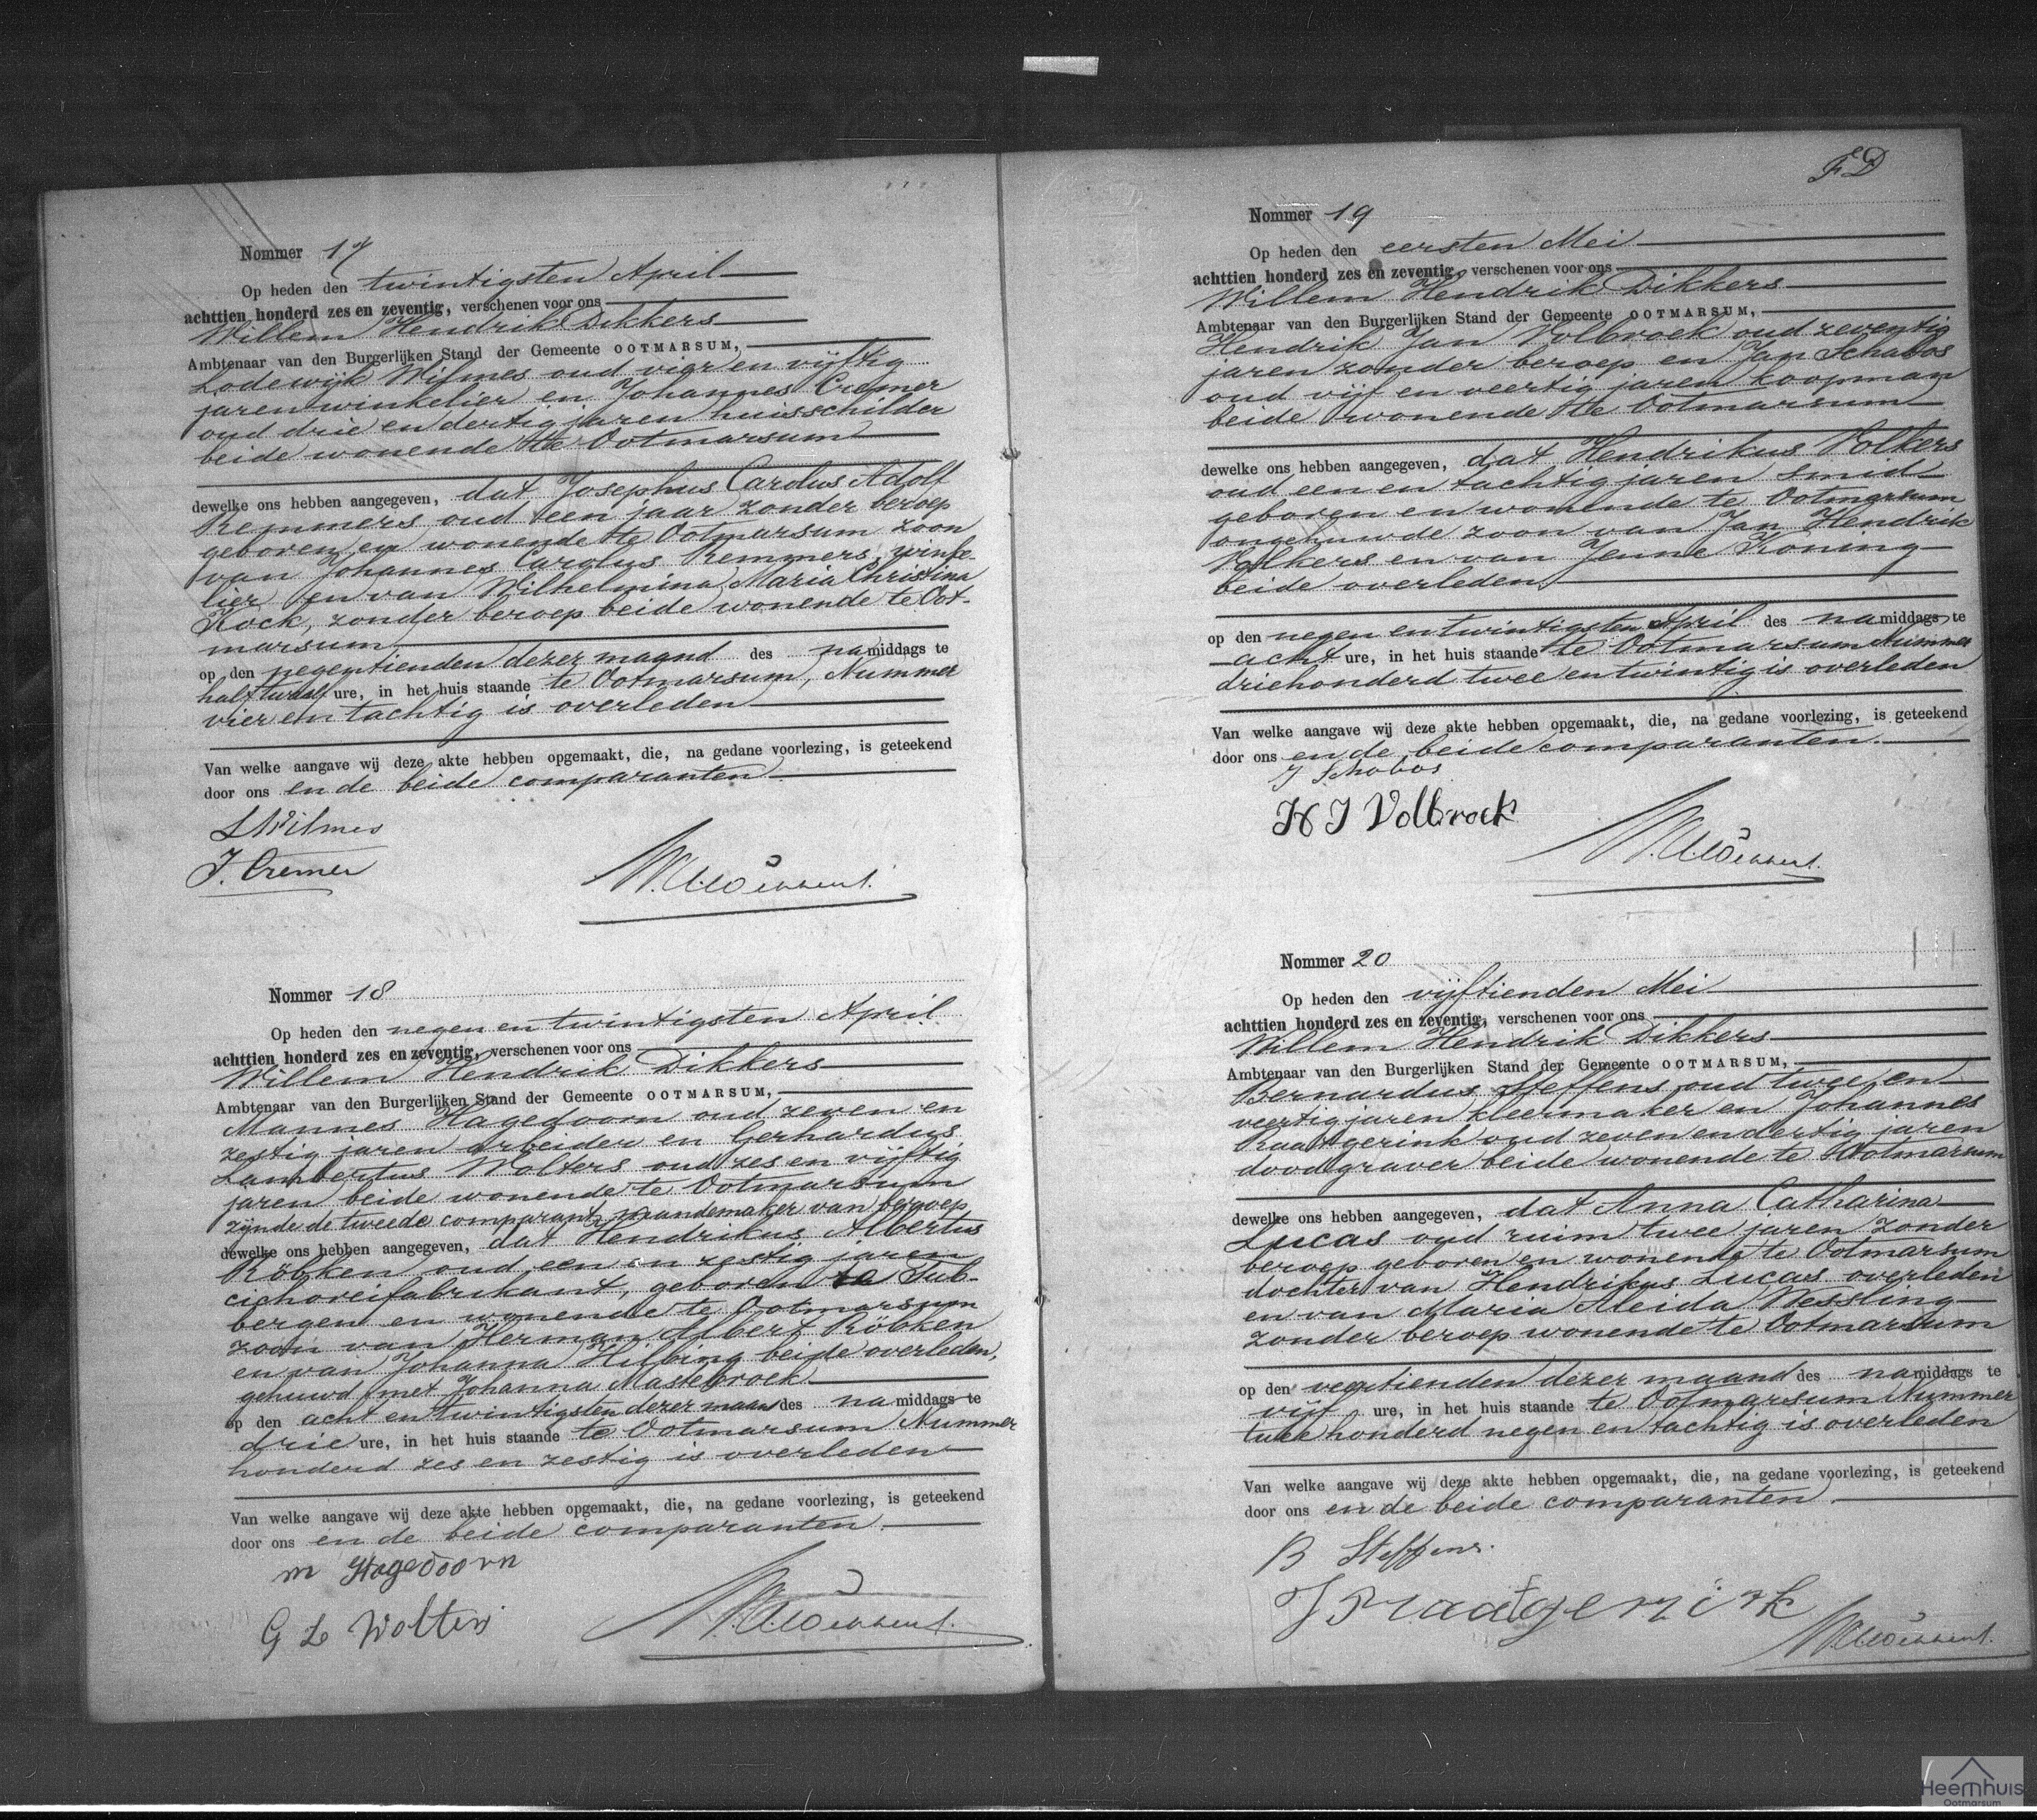 Nommer 17
Op heden den twintigsten April
achttien honderd zes en zeventig, verschenen voor ons
Willem Hendrik Dikkers
Ambtenaar van den Burgerlijken Stand der Gemeente OOTMARSUM,
Lodewijk Wilmes oud vier en vijftig
jaren winkelier en Johannes Cremer
oud drie en dertig jaren huisschilder
beide wonende te Ootmarsum
dewelke ons hebben aangegeven, dat Josephus Carolus Adolf
Remmers oud een jaar zonder beroep
geboren en wonende te Ootmarsum zoon
van Johannes Carolus Remmers, winke-
lier en van Wilhelmina Maria Christina
Kock, zonder beroep beide wonende te Oot-
marsum
op den negentienden dezer maand des namiddags te
half twalf ure, in het huis staande te Ootmarsum, Nummer
vier en tachtig is overleden
Van welke aangave wij deze akte hebben opgemaakt, die, na gedane voorlezing, is geteekend
door ons en de beide comparanten
L Wilmes
J. Cremer
Nommer 18
Op heden den negen en twintigsten April
achttien honderd zes en zeventig, verschenen voor ons
Willem Hendrik Dikkers
Ambtenaar van den Burgerlijken Stand der Gemeente OOTMARSUM,
Mannes Hagedoorn oud zeven en
zestig jaren arbeider en Gerhardus
Lambertus Wolters oud zes en vijftig
jaren beide wonende te Ootmarsum
zijnde de tweede comparant mandemaker van beroep
dewelke ons hebben aangegeven, dat Hendrikus Albertus
Röbken oud een en zestig jaren
cichoreifabrikant, geboren te Tub-
bergen en wonende te Ootmarsum
zoon van Herman Albert Röbken
en van Johanna Hilbing beide overleden,
gehuwd met Johanna Mastebroek
op den acht en twintigsten dezer maand des namiddags te
drie ure, in het huis staande te Ootmarsum Nummer
honderd zes en zestig is overleden
Van welke aangave wij deze akte hebben opgemaakt, die, na gedane voorlezing, is geteekend
door ons en de beide comparanten
m Hagedoorn
G L Wolters
FD
Nommer 19
Op heden den eersten Mei
achttien honderd zes en zeventig, verschenen voor ons
Willem Hendrik Dikkers
Ambtenaar van den Burgerlijken Stand der Gemeente OOTMARSUM,
Hendrik Jan Volbroek oud zeventig
jaren zonder beroep en Jan Schabos
oud vijf en veertig jaren koopman
beide wonende te Ootmarsum
dewelke ons hebben aangegeven, dat Hendrikus Volkers
oud een en tachtig jaren smid
geboren en wonende te Ootmarsum
ongehuwde zoon van Jan Hendrik
Volkers en van Jenne Koning
beide overleden
op den negen en twintigsten April des namiddags te
acht ure, in het huis staande te Ootmarsum Nummer
driehonderd twee en twintig is overleden
Van welke aangave wij deze akte hebben opgemaakt, die, na gedane voorlezing, is geteekend
door ons en de beide comparanten.
J Schabos
H J Volbroek
Nommer 20
Op heden den vijftienden Mei
achttien honderd zes en zeventig, verschenen voor ons
Willem Hendrik Dikkers
Ambtenaar van den Burgerlijken Stand der Gemeente OOTMARSUM,
Bernardus Steffens oud twee en
veertig jaren kleermaker en Johannes
Raatgerink oud zeven en dertig jaren
doodgraver beide wonende te Ootmarsum
dewelke ons hebben aangegeven, dat Anna Catharina
Lucas oud ruim twee jaren zonder
beroep geboren en wonende te Ootmarsum
dochter van Hendrikus Lucas overleden
en van Maria Aleida Wessling
zonder beroep wonende te Ootmarsum
op den veertienden dezer maand des namiddags te
vijf ure, in het huis staande te Ootmarsum Nummer
twee honderd negen en tachtig is overleden
Van welke aangave wij deze akte hebben opgemaakt, die, na gedane voorlezing, is geteekend
door ons en de beide comparanten.
B Steffens.
J Raatgerink
Heemhuis
Ootmarsum